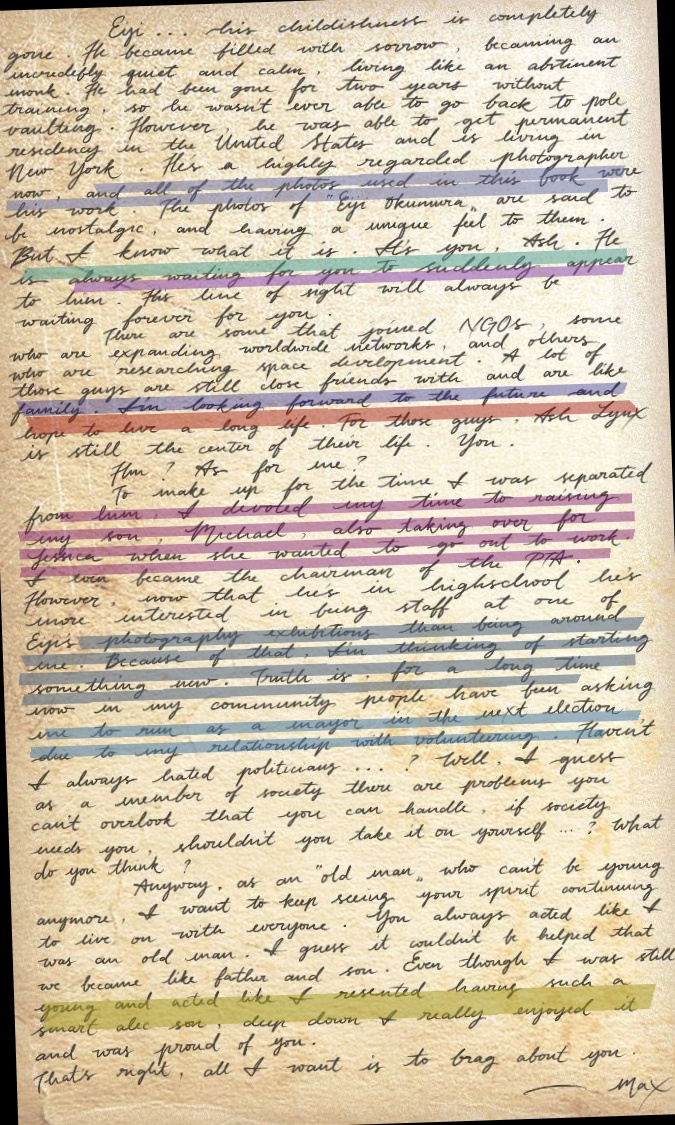 Eiji ... his childishness is completely
gone. He became filled with sorrow, becoming an
incredebly quiet and calm, living like an abstinent
monk. He had been gone for two years without
training, so he wasn't ever able to go back to pole
vaulting. However, he was able to get permanent
residency in the United States and is living in
New York. He's a highly regarded photographer
now, and all of the photos used in this book were
his work. The photos of "Eiji Okumura„ are said to
be nostalgic, and having a unique feel to them.
But I know what it is. It's you, Ash. He
is always waiting for you to suddenly appear
to him. His line of sight will always be
waiting forever for you.
There are some that joined NGOs, some
who are expanding worldwide networks, and others
who are researching space development. A lot of
those guys are still close friends with and are like
family. I'm looking forward to the future and
hope to live a long life. For those guys, Ash Lynx
is still the center of their life. You.
Hm? As for me?
To make up for the time I was separated
from him, I devoted my time to raising
my son, Michael, also taking over for
Jessica when she wanted to go out to work.
I even became the chairman of the PTA.
However, now that he's in highschool he's
more interested in being staff at one of
Eiji's photography exhibitions than being around
me. Because of that, I'm thinking of starting
something new. Truth is, for a long time
now in my community people have been asking
me to run as a mayor in the next election
due to my relationship with volunteering. Haven't
I always hated politicians ... ? Well, I guess
as a member of society there are problems you
can't overlook that you can handle, if society
needs you, shouldn't you take it on yourself ... ? What
do you think?
Anyway, as an "old man„ who can't be young
anymore, I want to keep seeing your spirit continuing
to live on with everyone. You always acted like I
was an old man. I guess it couldn't be helped that
we became like father and son. Even though I was still
young and acted like I resented having such a
smart alec son, deep down I really enjoyed it
and was proud of you.
That's right, all I want is to brag about you.
— Max